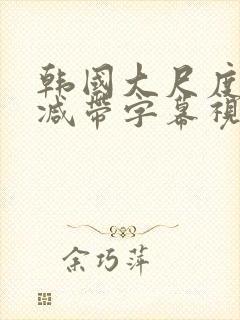 韩國大尺度
减带字幕視
余巧萍